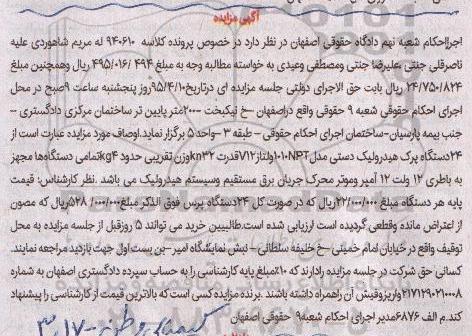 آگهی مزایده
اجرااحکام شعبه نهم دادگاه حقوقی اصفهان در نظر دارد در خصوص پرونده کلاسه ۹۴۰۶۱۰ له مریم شاهوردی علیه
ناصرقلی جنتی ،علیرضا جنتی ومصطفی وعیدی به خواسته مطالبه وجه به مبلغ ۴۹۴ /۴۹۵/۰۱۶ ریال وهمچنین مبلغ
۲۴/۷۵۰/۸۲۴ ریال بابت حق الاجرای دولتی جلسه مزایده ای درتاریخ۹۵/۴/۱۰روز پنجشنبه ساعت ۹صبح در محل
اجرای احکام حقوقی شعبه ۹ حقوقی واقع دراصفهان –خ نیکبخت –۲۰۰متر پایین تر ساختمان مرکزی دادگستری –
جنب بیمه پارسیان–ساختمان اجرای احکام حقوقی – طبقه ۳ –واحد۵ برگزار نماید.اوصاف مورد مزایده عبارت است از
۲۴دستگاه پرک هیدرولیک دستی مدل۱۰۱NPTولتاژV۱۲قدرت kn۳۲وزن تقریبی حدودkg۴تمامی دستگاهها مجهز
به باطری ۱۲ ولت ۱۲ آمپر وموتر محرک جریان برق مستقیم وسیستم هیدرولیک می باشد .نظر کارشناس: قیمت
پایه هر دستگاه مبلغ ۲۲/۰۰۰/۰۰۰ریال که در صورت کل ۲۴دستگاه پرس فوق الذکر مبلغ۵۲۸/۰۰۰/۰۰۰ریال که مصون
از اعتراض مانده وقطعی گردیده است ارزیابی شده است.طالبیین خرید می توانند ۵ روزقبل از جلسه مزایده به محل
توقیف واقع در خیابان امام خمینی –خ خلیفه سلطانی – نبش نمایشگاه امیر –بن بست اول جهت بازدید مراجعه نمایند.
کسانی حق شرکت در جلسه مزایده رادارند که ۱۰٪مبلغ پایه کارشناسی را به حساب سپرده دادگستری اصفهان به شماره
۲۱۷۱۲۹۰۲۱۰۰۰۸واریزوفیش آن راهمراه داشته باشند .برنده مزایده کسی است که بالاترین قیمت از کارشناسی را پیشنهاد
کند.م الف ۶۸۷۶مدیر اجرای احکام شعبه۹ حقوقی اصفهان